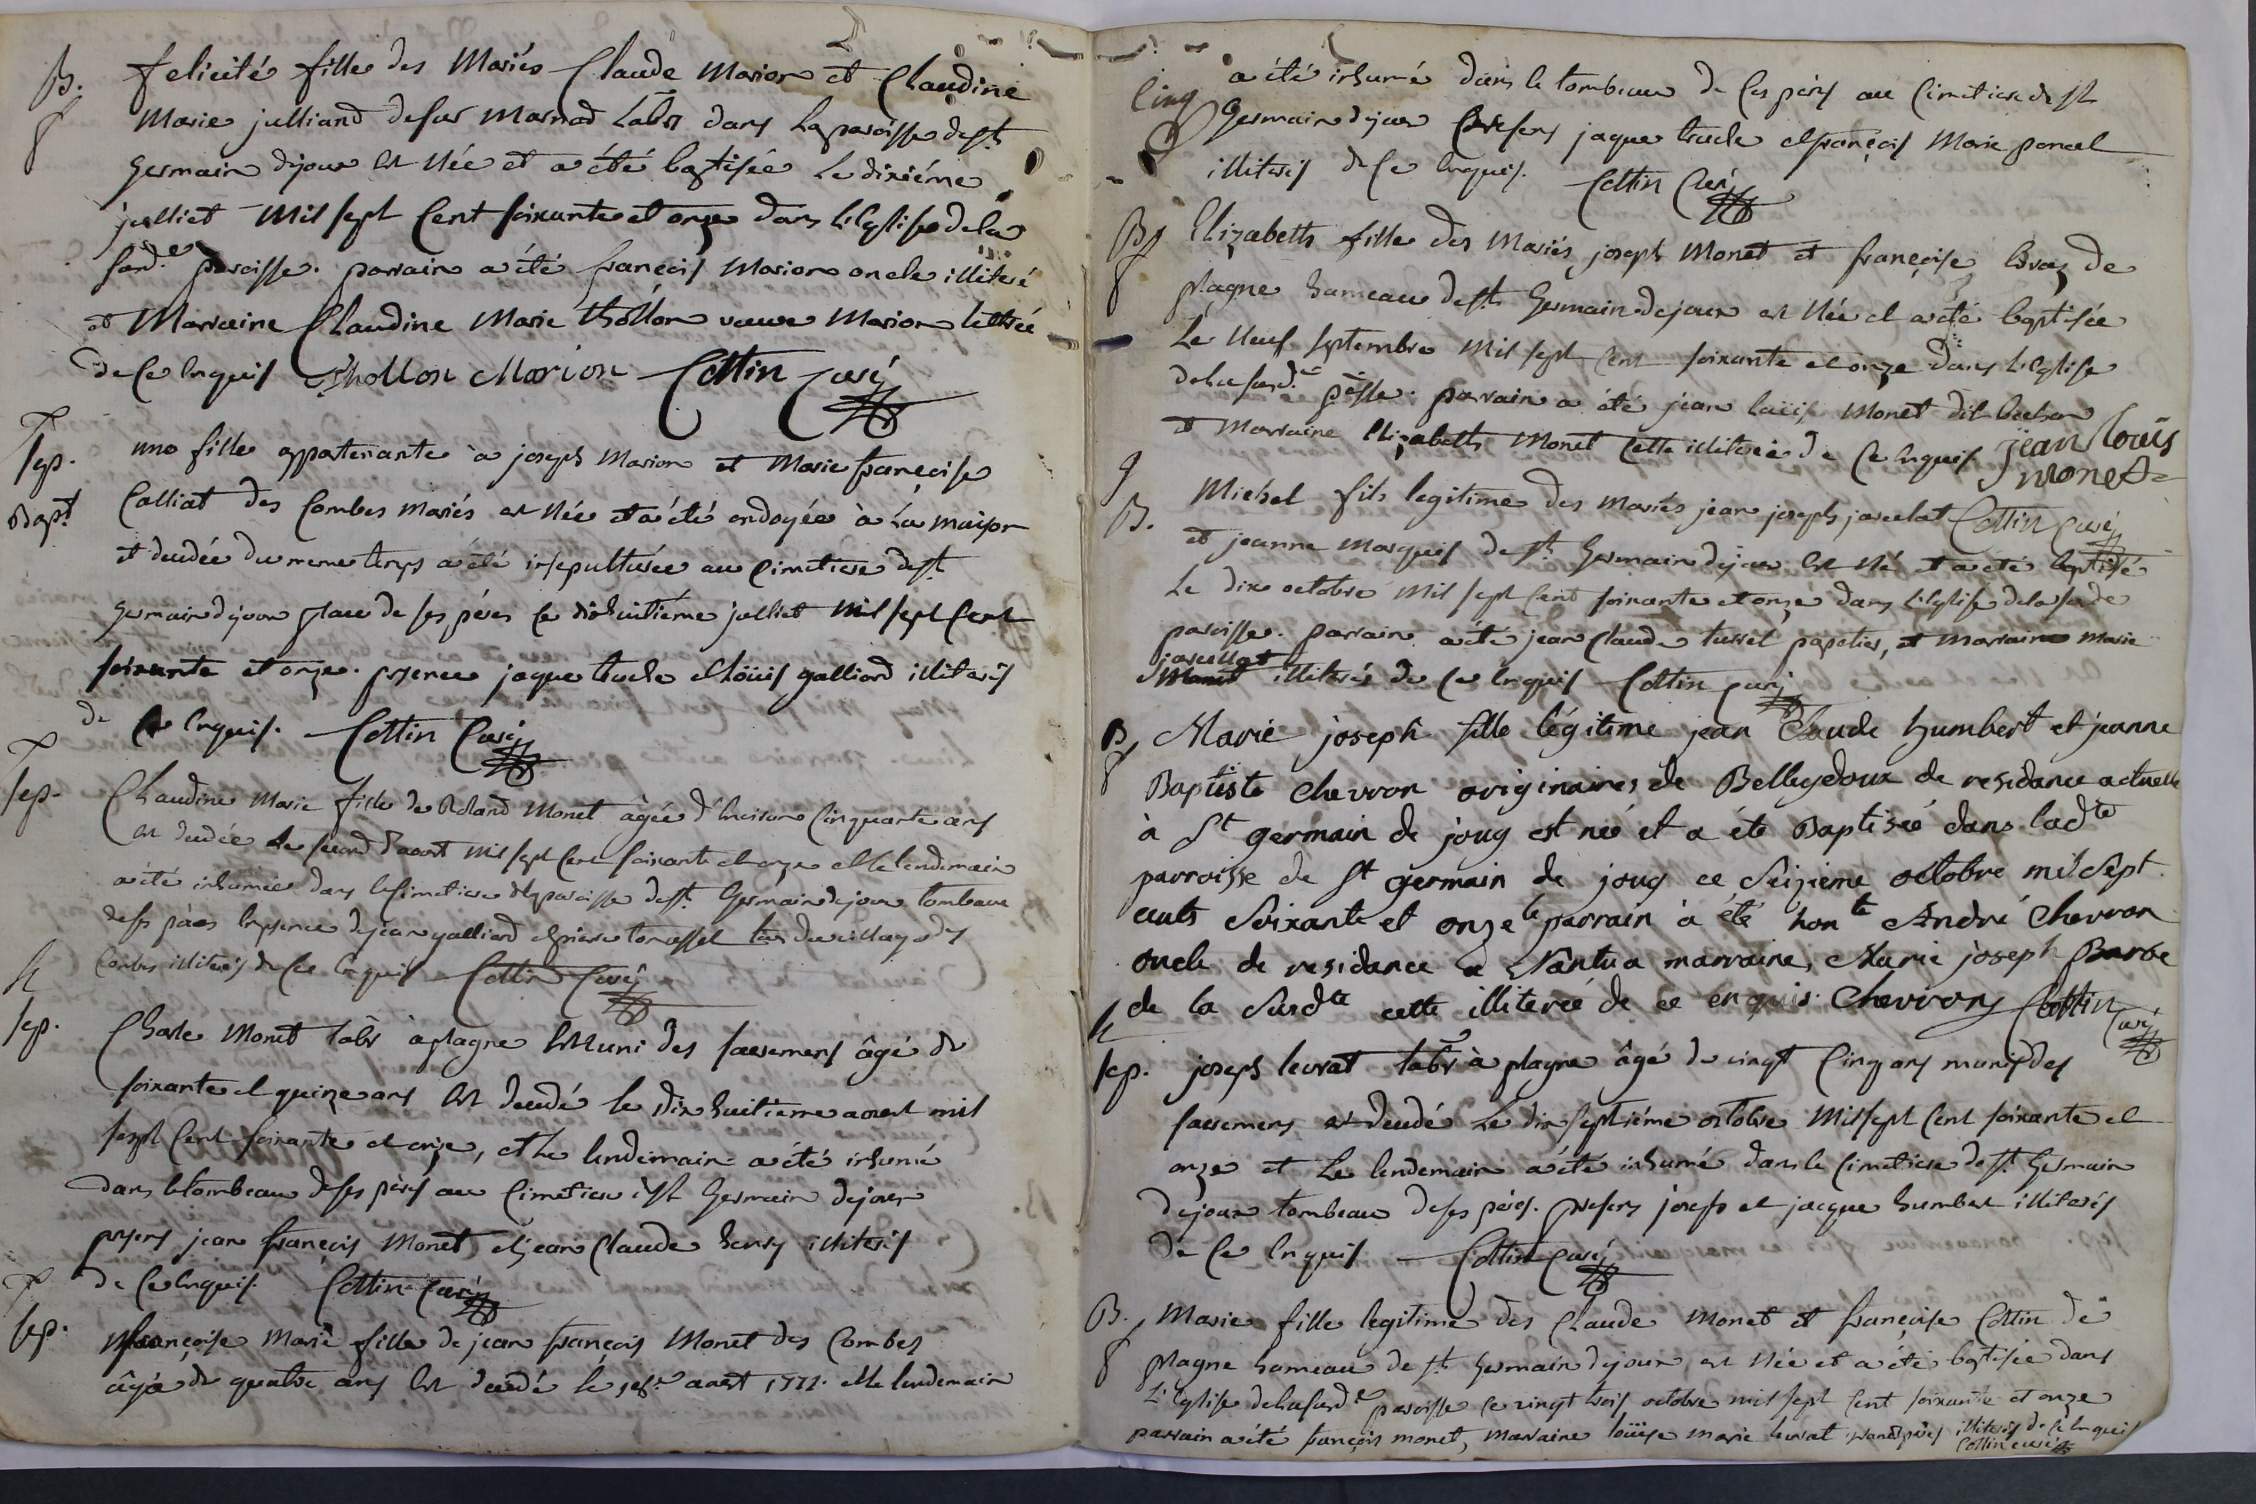 B. felicité fille des Mariés Claude Marion et Claudine
Marie julliand desur Marnod Labr dans la paroisse de st
Germain dejoux est Née et a été baptisée Le dixiéme
julliet Mil sept Cent soixante et onze dans L'Eglise de la
susd.e paroisse. parrain a été françois Marion oncle illiteré
et Marraine Claudine Marie thollon veuve Marion lettrée
de Ce Enquis Thollon Marion Cottin Curé
sep. une fille appartenante à joseph Marion et Marie françoise
Bapt. Calliat des Combes Mariés est Née et a été ondoyée à La maison
et decedée du meme temps a été insepulturée au Cimetiere de st
Germain dejoux place de ses péres Ce dixhuitiéme julliet Mil sept Cent
soixante et onze. presence jaque truche et loüis galliard illiterés
de Ce Enquis. Cottin Curé
sep. Claudine Marie fille de Roland Monet âgée d'Environ Cinquante ans
est decedée Le second d'aoust Mil sept Cent soixante et onze et le lendemain
a été inhumée dans le Cimetiere de la paroisse de st Germain dejoux tombeau
de ses péres En presence de jean galliard et pierre tournossel du village des
Combes illiterés de Ce Enquis Cottin Curé
h
sep. Charle Monet labr à plagne Est Muni des sacremens âgé de
soixante et quinze ans Est decedé le dix huitieme aoust mil
sept Cent soixante et onze, et Le lendemain a été inhumé
dans le tombeau de ses péres au Cimetiere de st Germain dejoux
presens jean françois Monet et jean Claude henry illiterés
de Ce Enquis. Cottin Curé
sep. françoise Marie fille de jean françois Monet des Combes
âgée de quatre ans Est decedé le aoust 1771. et le lendemain
Cinq a été inhumé dans le tombeau de ses péres au Cimetiere de st
Germain dejoux presens jaque truche et françois Marie poncet
illiterés de Ce Enquis. Cottin Curé
B Elizabeth fille des Mariés joseph Monet et françoise Evraz de
plagne hameau de st Germain dejoux est Née et a été baptisée
Le Neuf septembre Mil sept Cent soixante et onze dans L'Eglise
de la susd.e psse. parrain a été jean loüis Monet dit bechon
et Marraine Elizabeth Monet Cette illiterée de Ce Enquis jean louis
monet
Cottin Curé
B. Michel fils legitime des Mariés jean joseph javelot
et jeanne Marquis de st Germain dejoux Est Né et a été baptisé
Le dix octobre Mil sept Cent soixante et onze dans L'Eglise de la susde
paroisse. parrain a été jean Claude tursel papetier, et Marraine Marie
javellot
illiterés de Ce Enquis Cottin Curé
B Marie joseph fille légitime jean Claude humbert et jeanne
Baptiste Chevron originaires de Belleydoux de residance actuelle
à St germain de joug est née et a été Baptisée dans ladte
parroisse de St germain de joug ce Seizieme octobre mil Sept
cents Soixante et onze le parrain à été honte André Chevron
oncle de residance a Nantua marraine, Marie joseph Barbe
de la Susdte cette illiterée de ce enquis. Chevrony Cottin
Curé
h
sep. joseph levrat labr à plagne âgé de vingt Cinq ans munis des
sacremens est decedé Le dix septiéme octobre Mil sept Cent soixante et
onze et Le lendemain a été inhumé dans le Cimetiere de st Germain
dejoux tombeau de ses péres. presens joseph et jacque humbert illiterés
de Ce Enquis Cottin Curé
B. Marie fille legitime des Claude Monet et françoise Cottin de
plagne hameau de st Germain dejoux, est Née et a été baptisée dans
L'Eglise de la susd.e paroisse Ce vingt trois octobre mil sept Cent soixante et onze
parrain a été françois monet, marraine loüise marie levrat grands péres illiterés de Ce Enquis
Cottin curé